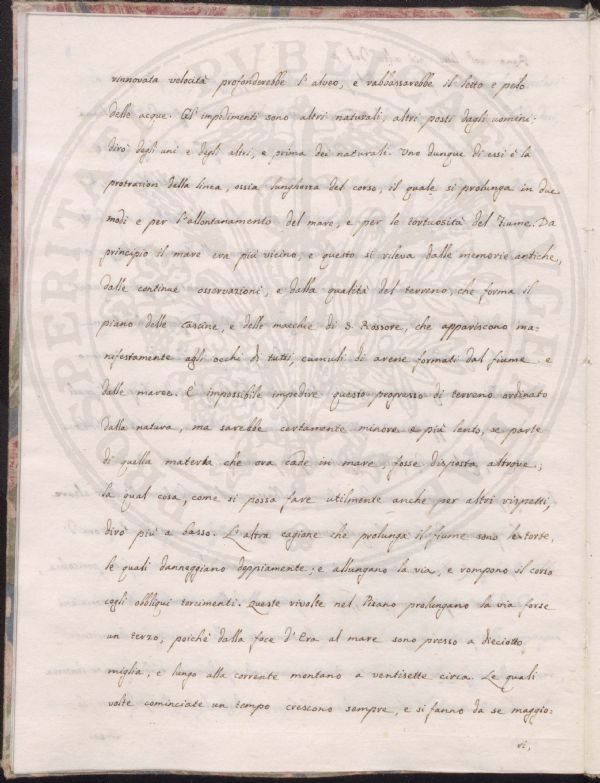 rinnovata velocità profonderebbe l'alveo, e rabbassarebbe il letto e pelo
delle acque. Gl'impedimenti sono altri naturali, altri posti dagli uomini:
dirò degli uni e degli altri, e prima dei naturali. Uno dunque di essi è la
protrazion della linea, ossia lunghezza del corso, il quale si prolunga in due
modi e per l'allontanamento del mare, e per le tortuosità del Fiume. Da
principio il mare era più vicino, e questo si rileva dalle memorie antiche,
dalle continue osservazioni, e dalla qualità del terreno, che forma il
piano delle Cascine, e delle macchie di S. Rossore, che appariscono ma-
nifestamente agli occhi di tutti, cumuli di arene formati dal fiume e
dalle maree. È impossibile impedire questo progresso di terreno ordinato
dalla natura, ma sarebbe certamente minore e più lento, se parte
di quella materia che ora cade in mare, fosse disposta altrove;
la qual cosa, come si possa fare utilmente anche per altri rispetti,
dirò più a basso. L'altra cagione che prolunga il fiume sono le torte,
le quali danneggiano doppiamente; e allungano la via, e rompono il corso
cogli obbliqui torcimenti. Queste rivolte nel Pisano prolungano la via forse
un terzo, poichè dalla foce d'Era al mare sono presso a dieciotto
miglia, e lungo alla corrente montano a ventisette circa. Le quali
volte cominciate un tempo crescono sempre, e si fanno da se maggio:
ri,